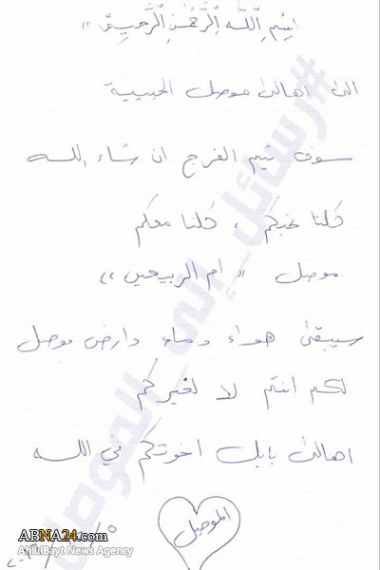 بِسْمِ اللَّهِ الرَّحْمَٰنِ الرَّحِيمِ "
الى اهالي موصل الحبيبة
سوف يتم الفرج ان شاء الله
كلنا نحبكم ، كلنا معكم
موصل " ام الربيعين "
سيبقى هواء وماء وارض موصل
لكم انتم لا لغيركم
اهالي بابل اخوتكم في الله
الموصل
#رسائل_إلى_الموصل
ABNA24.com
AhlulBayt News Agency